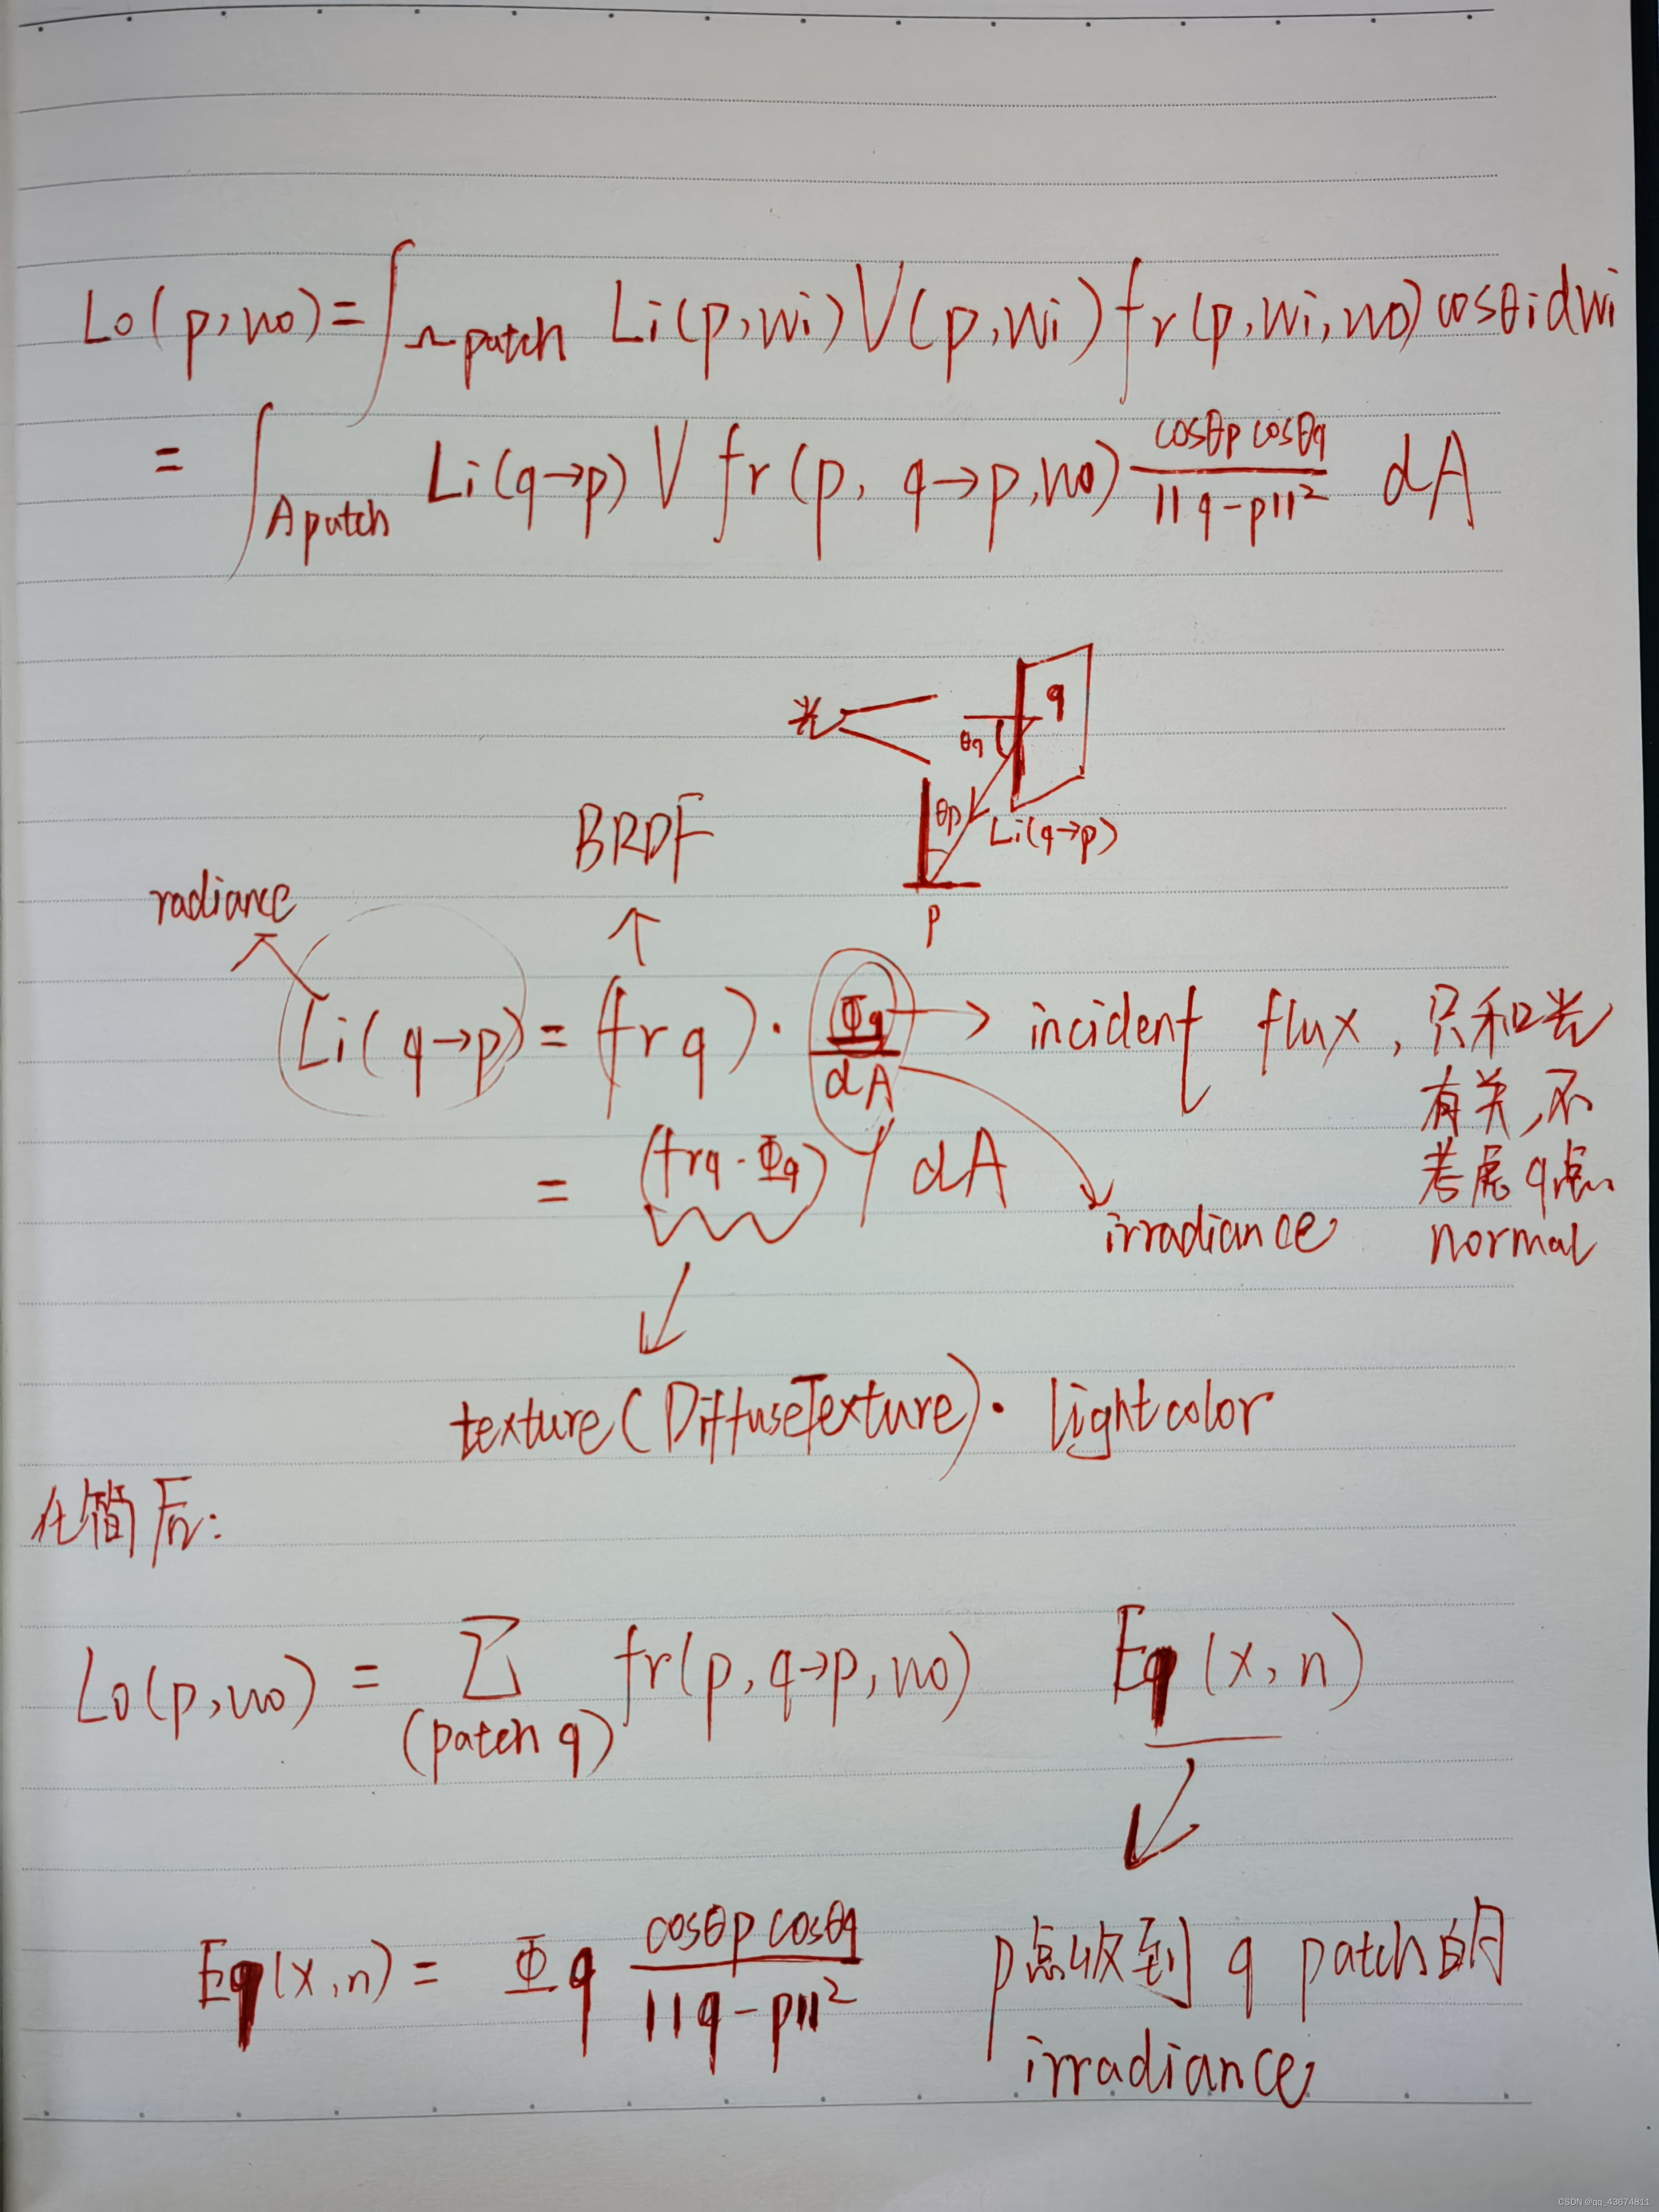 Lo(p,wo)=∫Ωpatch Li(p,wi)V(p,wi)fr(p,wi,wo)cosθidwi
=∫Apatch Li(q→p)V fr(p, q→p,wo) cosθp cosθq / ||q-p||² dA
光
q
θq
θp
Li(q→p)
p
BRDF
radiance
Li(q→p)=(frq)·Φq/dA → incident flux,只和光
有关,不
考虑q点
normal
=(frq·Φq)/dA
irradiance
texture(DiffuseTexture)·lightcolor
化简后:
Lo(p,wo)=Σ(patch q) fr(p,q→p,wo) Eq(x,n)
Eq(x,n)=Φq cosθp cosθq / ||q-p||² p点收到q patch的
irradiance
CSDN @qq_43674811